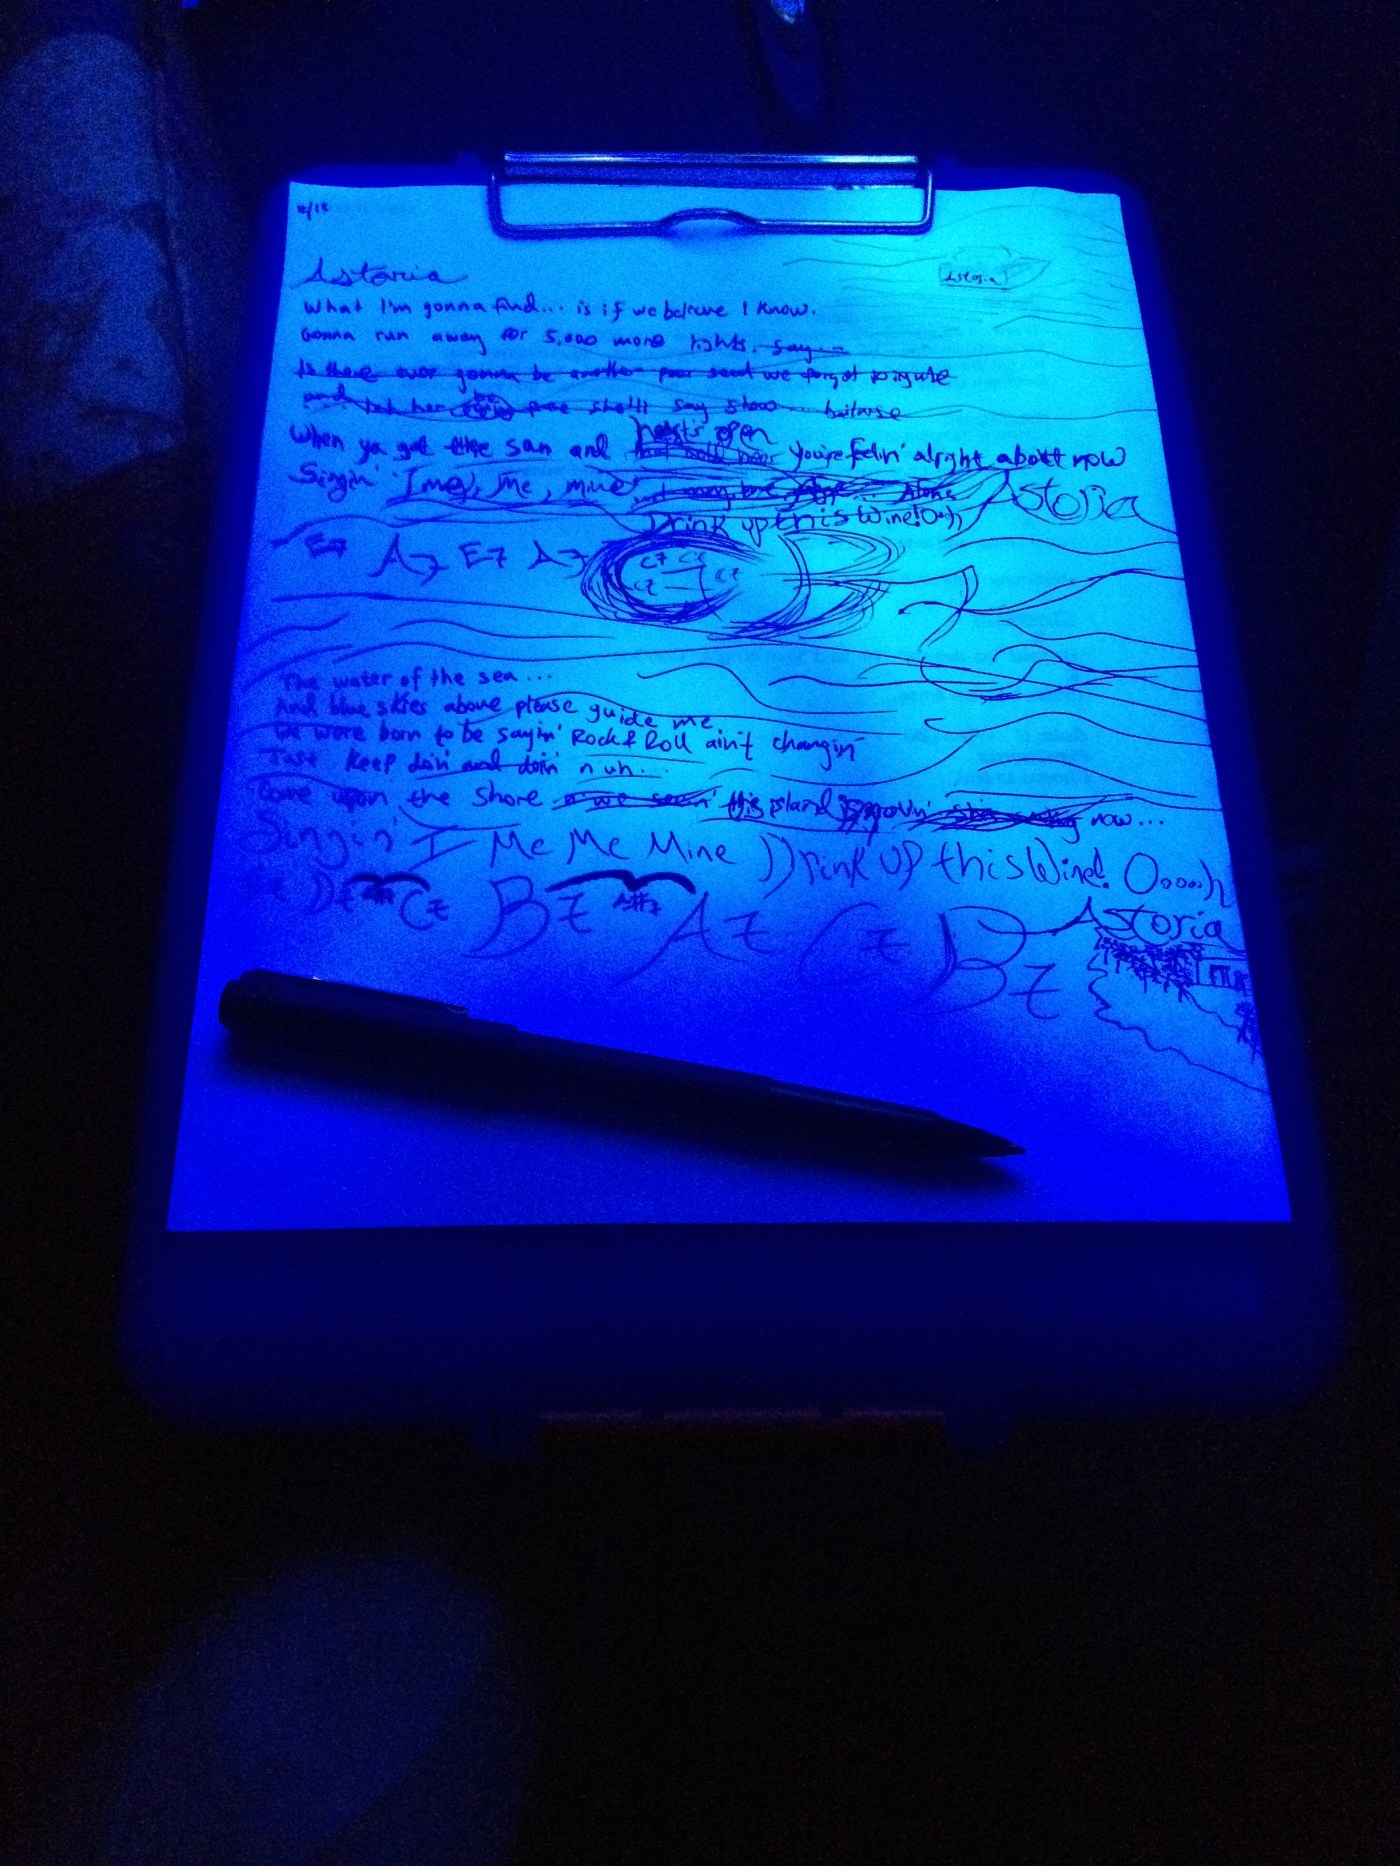 Astoria
Astoria
What I'm gonna find... is if we believe I know.
Gonna run away for 5,000 more lights. say
Is there ever gonna be another poor soul we forgot
and let her free she'll say slow...
When ya got the sun and heart's open you're feelin' alright about now
Singin' I me, Me, mine Alone Astoria
Drink up this Wine! Oooh
E7 A7 E7 A7 C7 B7
The water of the sea...
And blue skies above please guide me
We were born to be sayin' Rock & Roll ain't changin'
Just keep doin' and doin' n uh...
Come upon the shore this island is now...
Singin' I Me Me Mine Drink up this Wine! Ooooh
D7 C7 B7 A#7 A7 C7 B7 Astoria